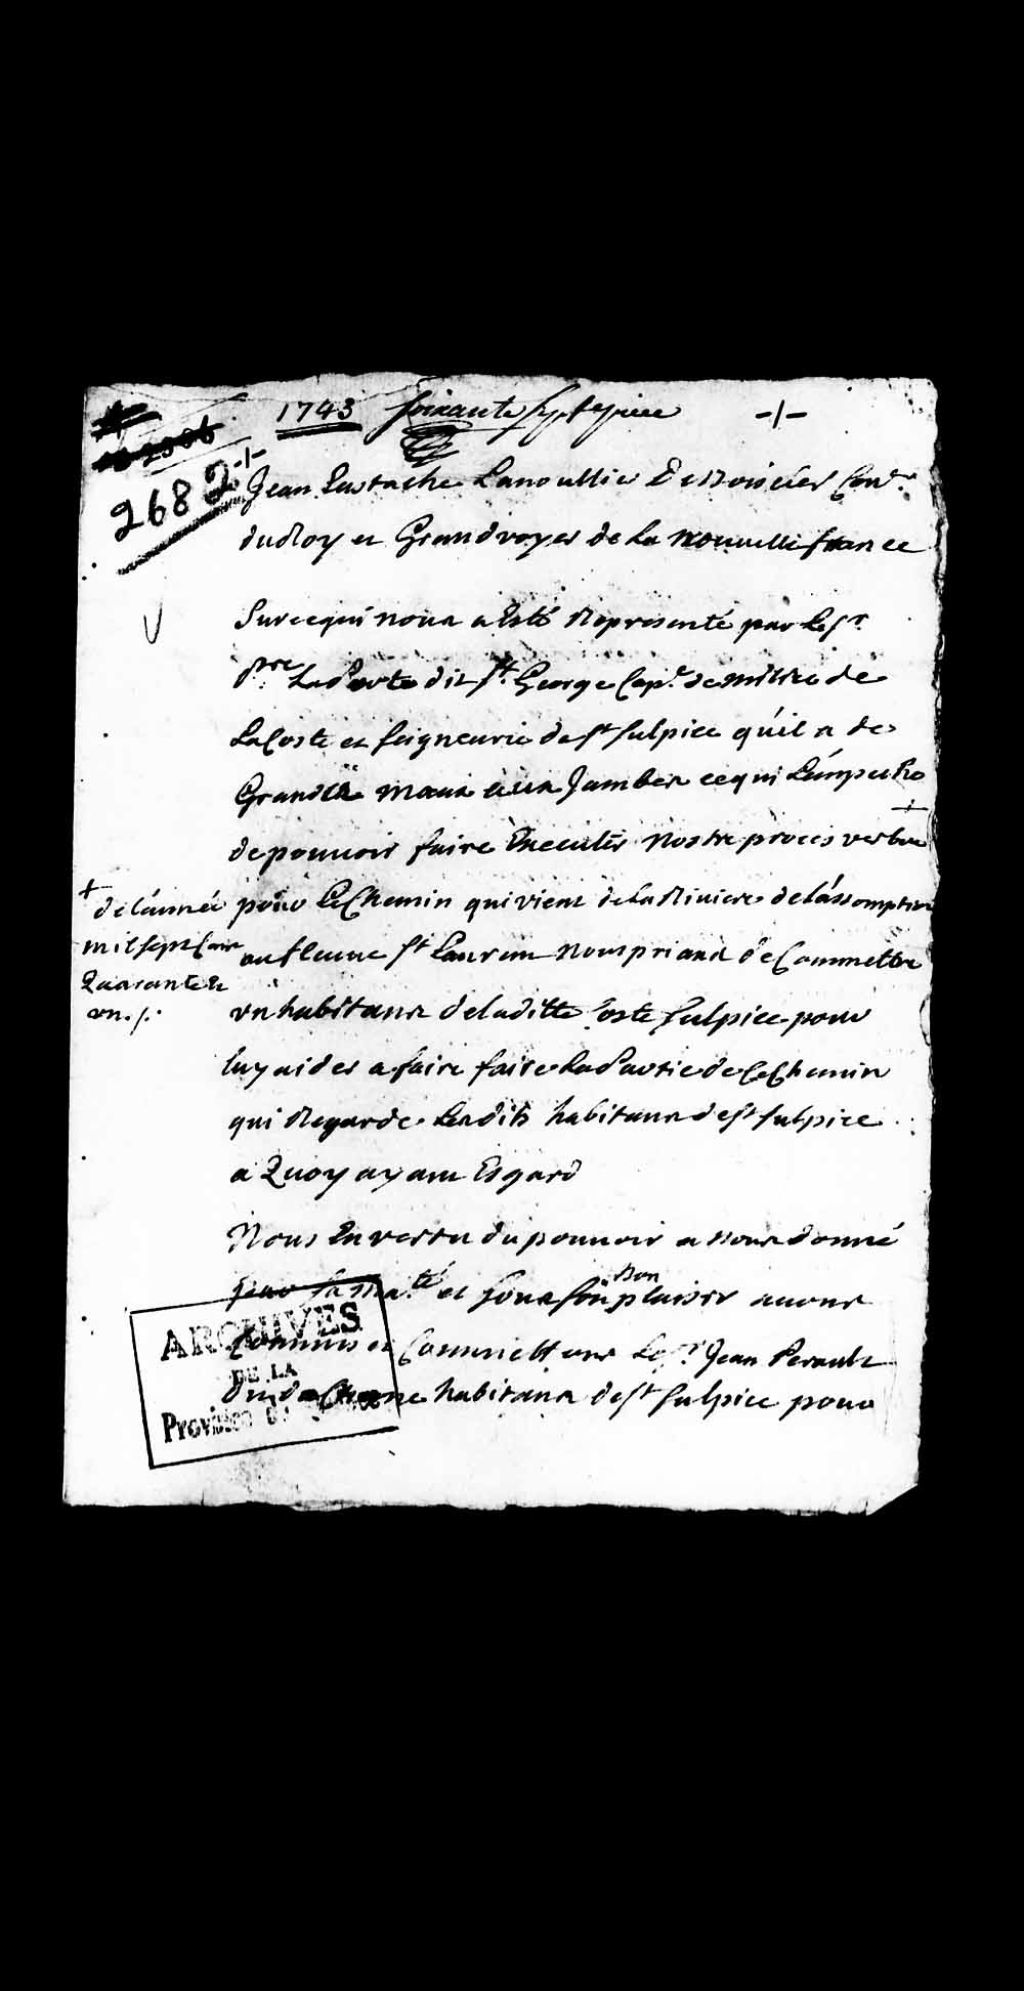 1743 soixante sept piece -/-
2682 -/-
Jean Eustache Lanoullier De Boisclerc Con.er
du Roy et Grand voyer de la nouvelle france
Sur ce qui nous a Esté Representé par le Sr
pre LaPorte dit St George Cap.e de milice de
La Coste et seigneurie de St Sulpice qu'il a de
Grands maux aux Jambes ce qui L'anpeche
de pouvoir faire Executer Nostre proces verbal +
+ de l'année
mil sept Cent
Quarante et
un ./.
pour Le Chemin qui vient de La Riviere de l'assomption
au fleuve St Laurent Nous priant de Commettre
un habitant de la ditte Coste St Sulpice pour
luy aider a faire faire La Partie de Ce Chemin
qui Regarde Lesdits habitans de St Sulpice
a Quoy ayant Esgard
Nous En vertu du pouvoir a nous donné
par sa ma.té et sous son bon plaisir avons
Commis et Commettons Le Sr Jean Perault
habitant de St Sulpice pour
ARCHIVES
DE LA
Province de Québec